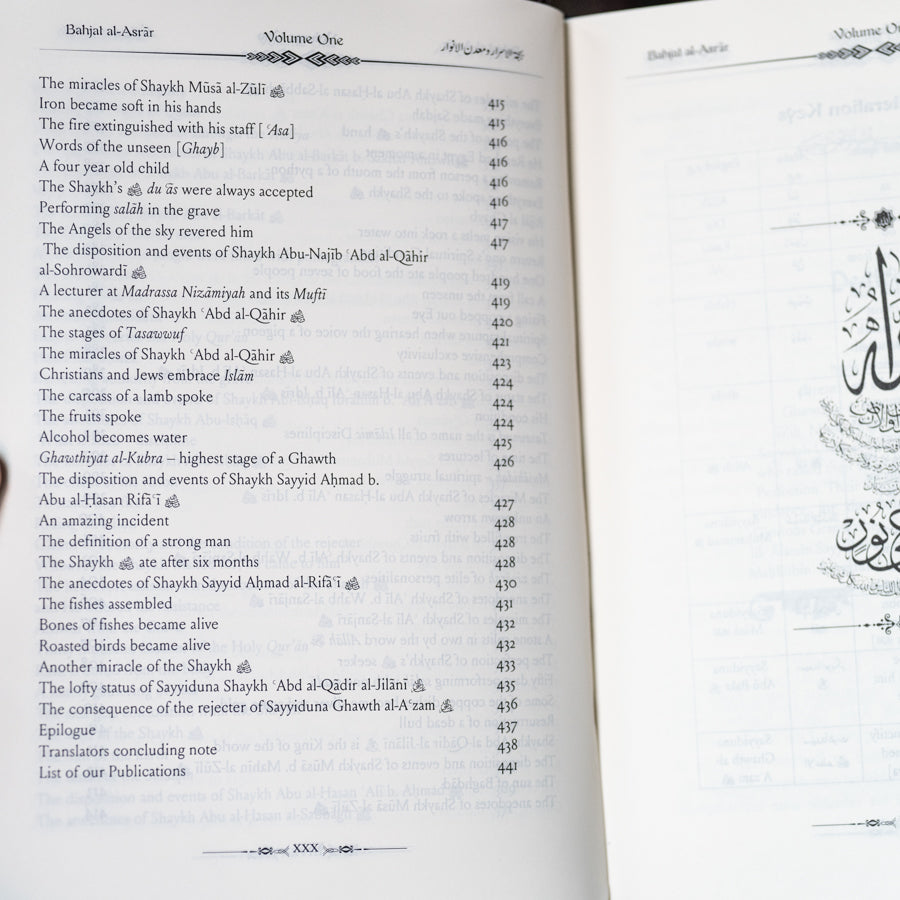 Bahjat al-Asrār
Volume One
The miracles of Shaykh Mūsā al-Zūlī 415
Iron became soft in his hands 415
The fire extinguished with his staff [ ʿAsa] 416
Words of the unseen [Ghayb] 416
A four year old child 416
The Shaykh's duʿās were always accepted 416
Performing salāh in the grave 417
The Angels of the sky revered him 417
The disposition and events of Shaykh Abu-Najīb ʿAbd al-Qāhir
al-Sohrowardī 419
A lecturer at Madrassa Nizāmiyah and its Muftī 419
The anecdotes of Shaykh ʿAbd al-Qāhir 420
The stages of Tasawwuf 421
The miracles of Shaykh ʿAbd al-Qāhir 423
Christians and Jews embrace Islām 424
The carcass of a lamb spoke 424
The fruits spoke 424
Alcohol becomes water 425
Ghawthiyat al-Kubra – highest stage of a Ghawth 426
The disposition and events of Shaykh Sayyid Aḥmad b.
Abu al-Ḥasan Rifāʿī 427
An amazing incident 428
The definition of a strong man 428
The Shaykh ate after six months 428
The anecdotes of Shaykh Sayyid Aḥmad al-Rifāʿī 430
The fishes assembled 431
Bones of fishes became alive 432
Roasted birds became alive 432
Another miracle of the Shaykh 433
The lofty status of Sayyiduna Shaykh ʿAbd al-Qādir al-Jilānī 435
The consequence of the rejecter of Sayyiduna Ghawth al-Aʿzam 436
Epilogue 437
Translators concluding note 438
List of our Publications 441
XXX
Bahjat al-Asrār
Volume